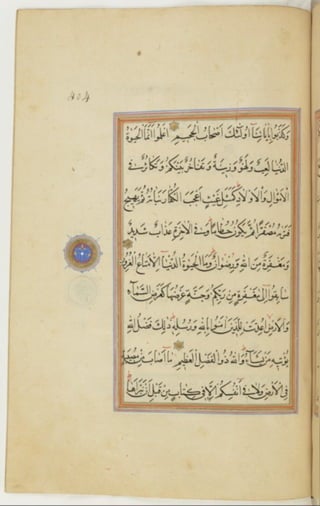 ٤٥٨
وَكَذَّبُوا بِآيَاتِنَا أُولَٰئِكَ أَصْحَابُ الْجَحِيمِ اعْلَمُوا أَنَّمَا الْحَيٰوةُ
الدُّنْيَا لَعِبٌ وَلَهْوٌ وَزِينَةٌ وَتَفَاخُرٌ بَيْنَكُمْ وَتَكَاثُرٌ فِي
الْأَمْوَالِ وَالْأَوْلَادِ كَمَثَلِ غَيْثٍ أَعْجَبَ الْكُفَّارَ نَبَاتُهُ ثُمَّ يَهِيجُ
فَتَرَاهُ مُصْفَرًّا ثُمَّ يَكُونُ حُطَامًا وَفِي الْآخِرَةِ عَذَابٌ شَدِيدٌ
وَمَغْفِرَةٌ مِنَ اللَّهِ وَرِضْوَانٌ وَمَا الْحَيٰوةُ الدُّنْيَا إِلَّا مَتَاعُ الْغُرُورِ
سَابِقُوا إِلَىٰ مَغْفِرَةٍ مِنْ رَبِّكُمْ وَجَنَّةٍ عَرْضُهَا كَعَرْضِ السَّمَاءِ
وَالْأَرْضِ أُعِدَّتْ لِلَّذِينَ آمَنُوا بِاللَّهِ وَرُسُلِهِ ذَٰلِكَ فَضْلُ اللَّهِ
يُؤْتِيهِ مَنْ يَشَاءُ وَاللَّهُ ذُو الْفَضْلِ الْعَظِيمِ مَا أَصَابَ مِنْ مُصِيبَةٍ
فِي الْأَرْضِ وَلَا فِي أَنْفُسِكُمْ إِلَّا فِي كِتَابٍ مِنْ قَبْلِ أَنْ نَبْرَأَهَا